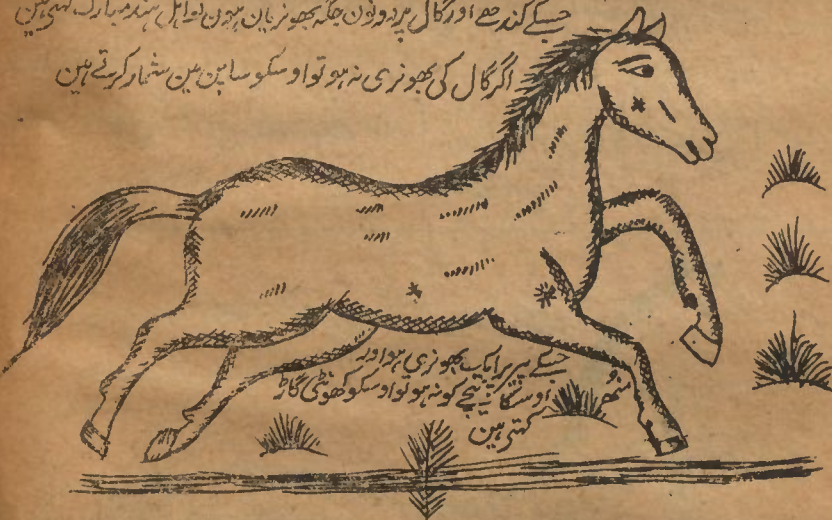 جسکے کندھے اور گال پر دونوں جگہ بھونریان ہون تو اہل ہند مبارک کہتی ہین
اگر گال کی بھونری نہ ہو تو اوسکو سابین مین شمار کرتے ہین
جسکے پیر پر ایک بھونری ہو اور
منھ اوسکا نیچے کو نہ ہو تو اوسکو کھونٹی گاڑ
کہتی ہین